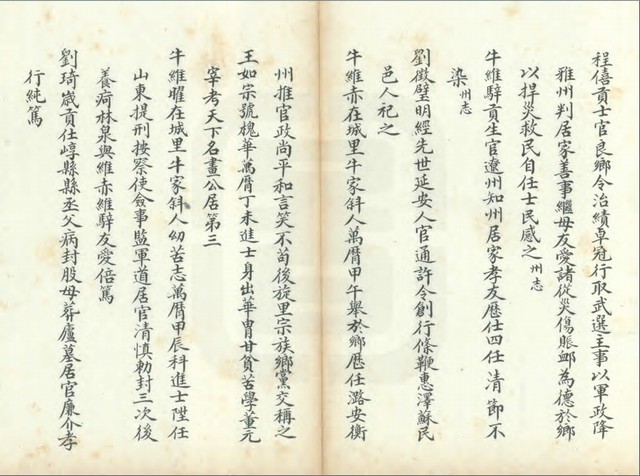 程僖貢士官良鄉令治績卓冠行取武選主事以軍政降
雅州判居家善事繼母友愛諸從災傷賑卹為德於鄉
以捍災救民自任士民感之州志
牛維騂貢生官遼州知州居家孝友歷仕四任清節不
染州志
劉徵璧明經先世延安人官通許令創行條鞭惠澤蘇民
邑人祀之
牛維赤在城里牛家斜人萬曆甲午舉於鄉歷任潞安衡
州推官政尚平和言笑不苟後旋里宗族鄉黨交稱之
王如宗號槐華萬曆丁未進士身出華胄甘貧苦學董元
宰考天下名畫公居第三
牛維曜在城里牛家斜人幼苦志萬曆甲辰科進士陞任
山東提刑按察使僉事監軍道居官清慎勅封三次後
養疴林泉與維赤維騂友愛倍篤
劉琦歲貢仕崞縣縣丞父病刲股母葬廬墓居官廉介孝
行純篤